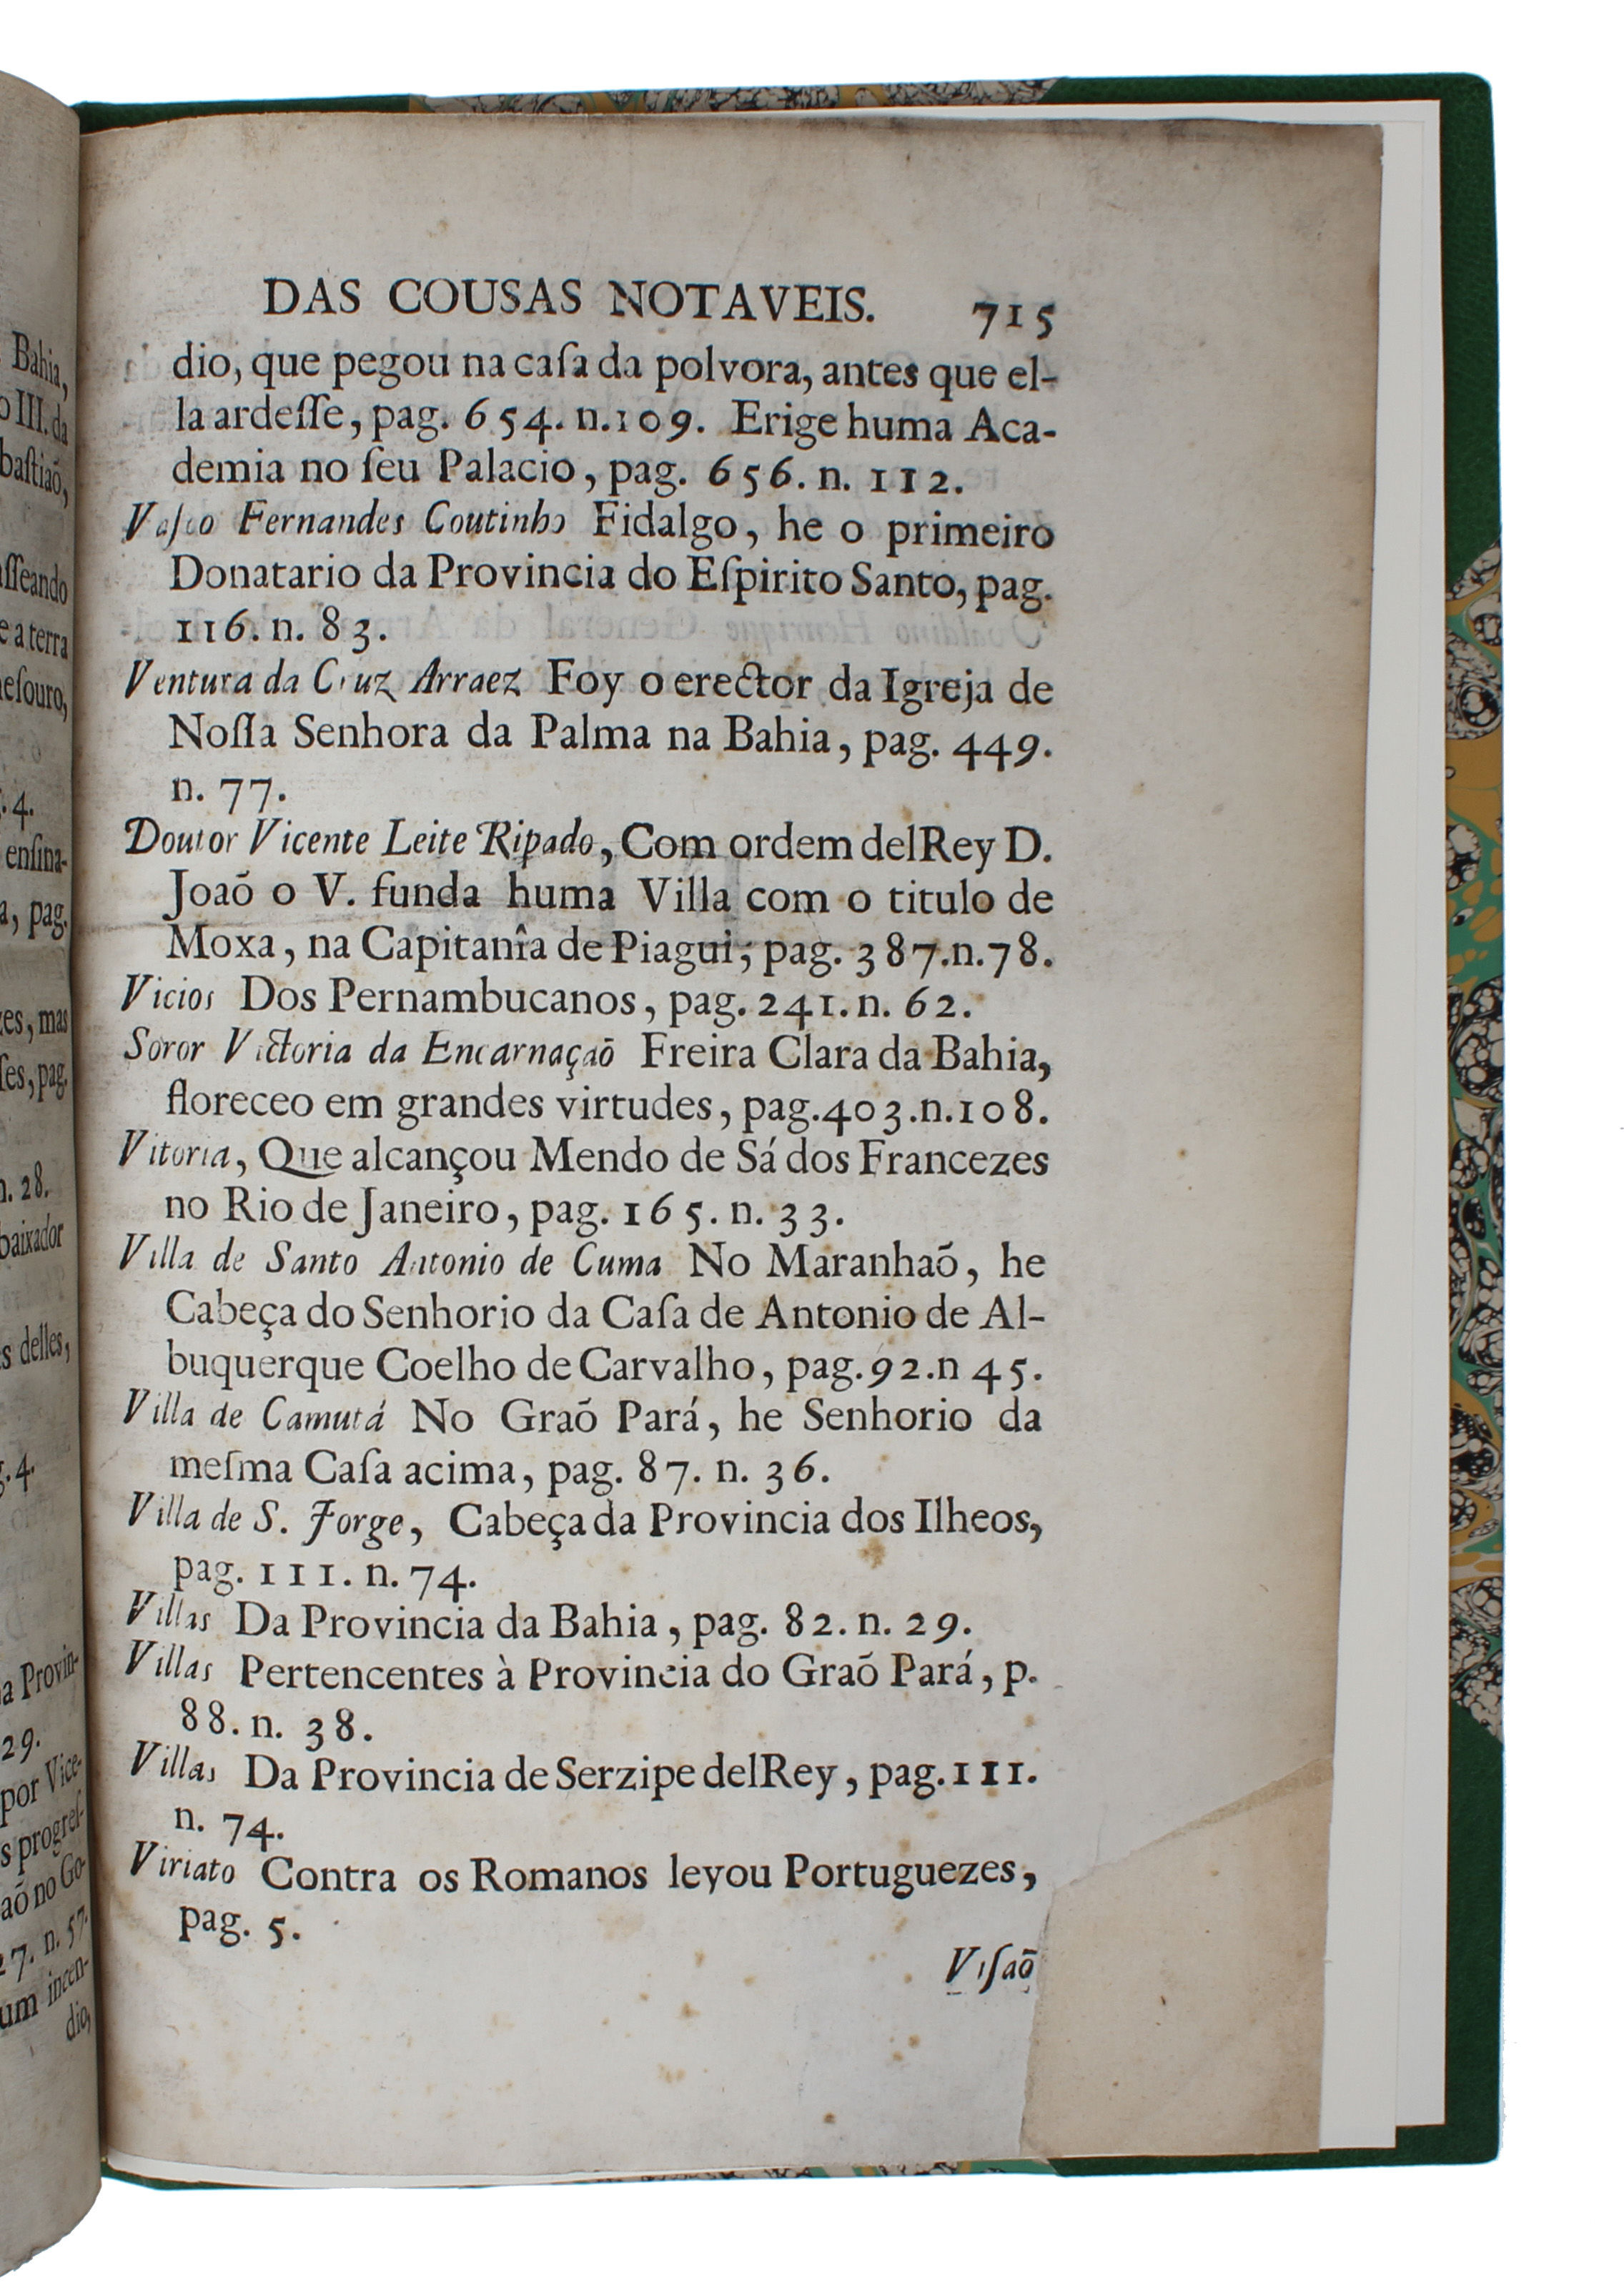 Bahia,
o III. da
baſtiaõ,
aſſeando
e a terra
heſouro,
. 4.
enſina-
a, pag.
es, mas
ſes, pag.
n. 28.
baixador
s delles,
g. 4.
a Provin-
29.
por Vice-
s progreſ-
aõ no Go-
27. n. 57.
um incen-
dio,
DAS COUSAS NOTAVEIS. 715
dio, que pegou na caſa da polvora, antes que el-
la ardeſſe, pag. 654. n. 109. Erige huma Aca-
demia no ſeu Palacio, pag. 656. n. 112.
Vaſco Fernandes Coutinho Fidalgo, he o primeiro
Donatario da Provincia do Eſpirito Santo, pag.
116. n. 83.
Ventura da Cruz Arraez Foy o erector da Igreja de
Noſſa Senhora da Palma na Bahia, pag. 449.
n. 77.
Doutor Vicente Leite Ripado, Com ordem delRey D.
Joaõ o V. funda huma Villa com o titulo de
Moxa, na Capitanîa de Piagui; pag. 387. n. 78.
Vicios Dos Pernambucanos, pag. 241. n. 62.
Soror Victoria da Encarnaçaõ Freira Clara da Bahia,
floreceo em grandes virtudes, pag. 403. n. 108.
Vitoria, Que alcançou Mendo de Sá dos Francezes
no Rio de Janeiro, pag. 165. n. 33.
Villa de Santo Antonio de Cuma No Maranhaõ, he
Cabeça do Senhorio da Caſa de Antonio de Al-
buquerque Coelho de Carvalho, pag. 92. n 45.
Villa de Camutá No Graõ Pará, he Senhorio da
meſma Caſa acima, pag. 87. n. 36.
Villa de S. Jorge, Cabeça da Provincia dos Ilheos,
pag. 111. n. 74.
Villas Da Provincia da Bahia, pag. 82. n. 29.
Villas Pertencentes à Provincia do Graõ Pará, p.
88. n. 38.
Villas Da Provincia de Serzipe delRey, pag. 111.
n. 74.
Viriato Contra os Romanos leyou Portuguezes,
pag. 5.
Viſaõ